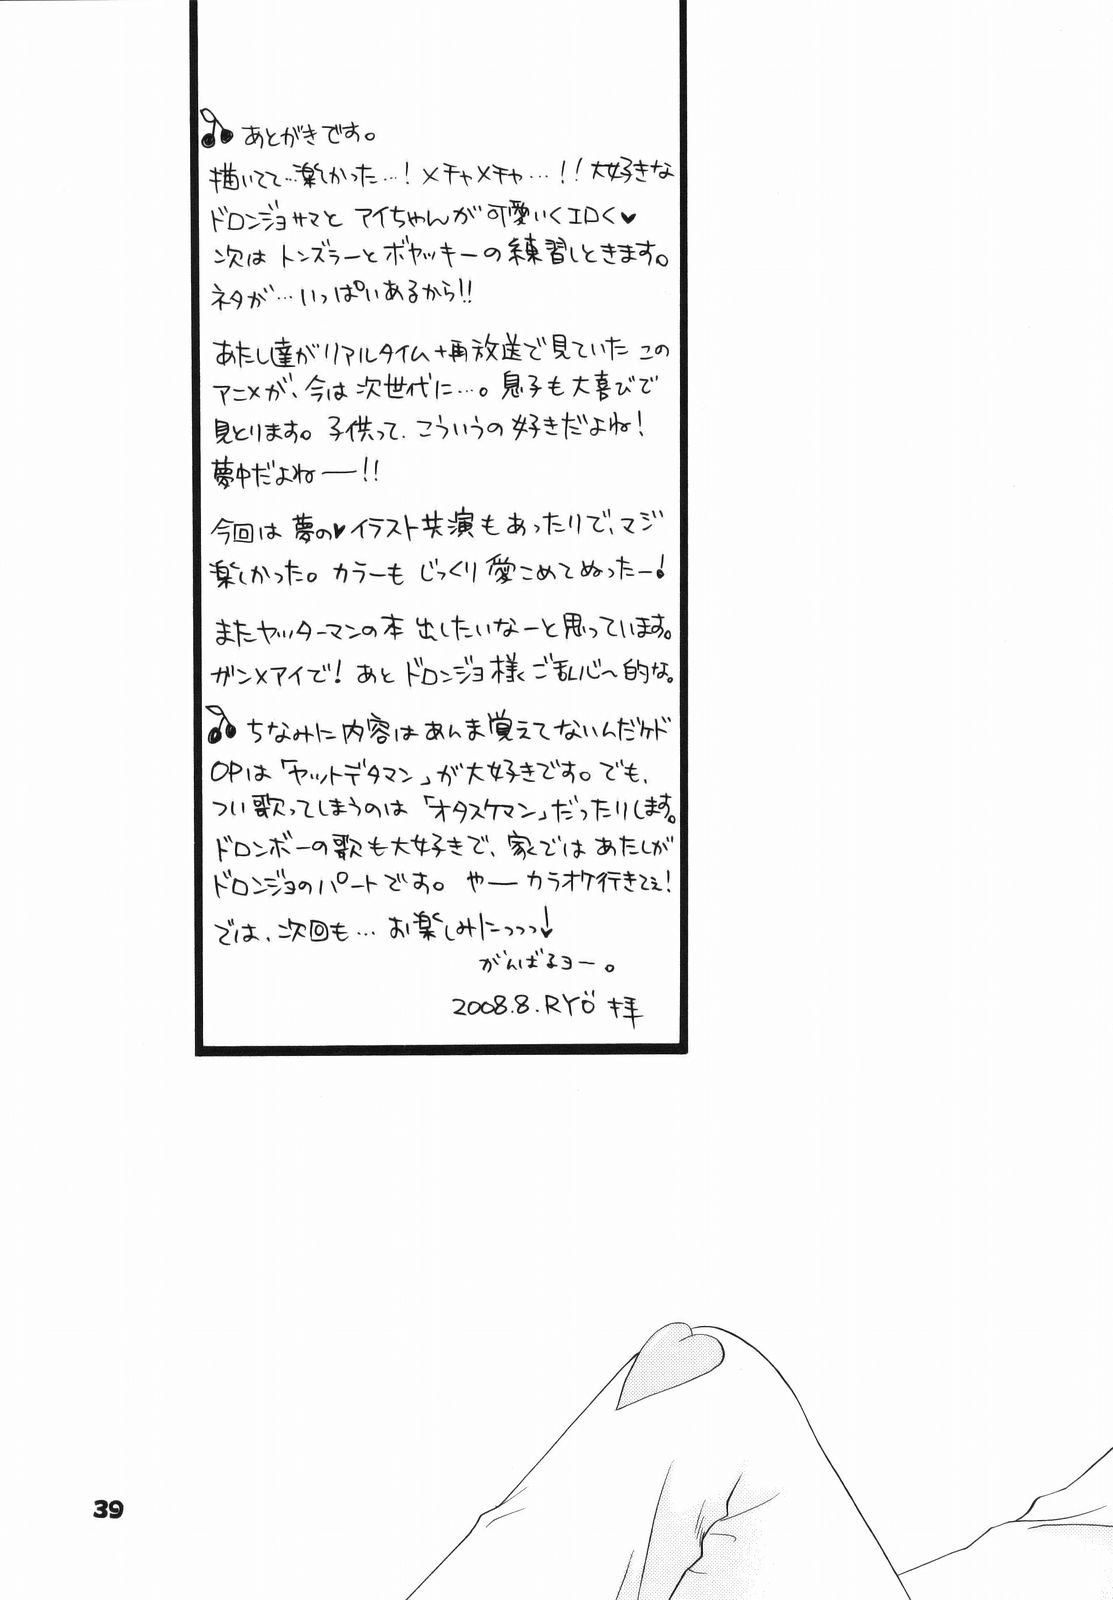 あとがきです。
描いてて…楽しかった…！メチャメチャ…！！大好きな
ドロンジョサマと アイちゃんが可愛いくエロく♥
次は トンズラーとボヤッキーの練習しときます。
ネタが…いっぱいあるから!!
あたし達がリアルタイム+再放送で見ていた この
アニメが、今は次世代に…。息子も大喜びで
見とります。子供って、こういうの好きだよね！
夢中だよねー!!
今回は 夢の♥イラスト共演もあったりで、マジ
楽しかった。カラーも じっくり愛こめてぬったー！
またヤッターマンの本 出したいなーと思っています。
ガン×アイで！あと ドロンジョ様ご乱心〜的な。
ちなみに内容はあんま覚えてないんだケド
OPは「ヤットデタマン」が大好きです。でも、
つい歌ってしまうのは「オタスケマン」だったりします。
ドロンボーの歌も大好きで、家ではあたしが
ドロンジョのパートです。 やー カラオケ行きてぇ！
では、次回も…お楽しみにっっっ！
がんばるヨー。
2008.8.RYÖ 拝
39